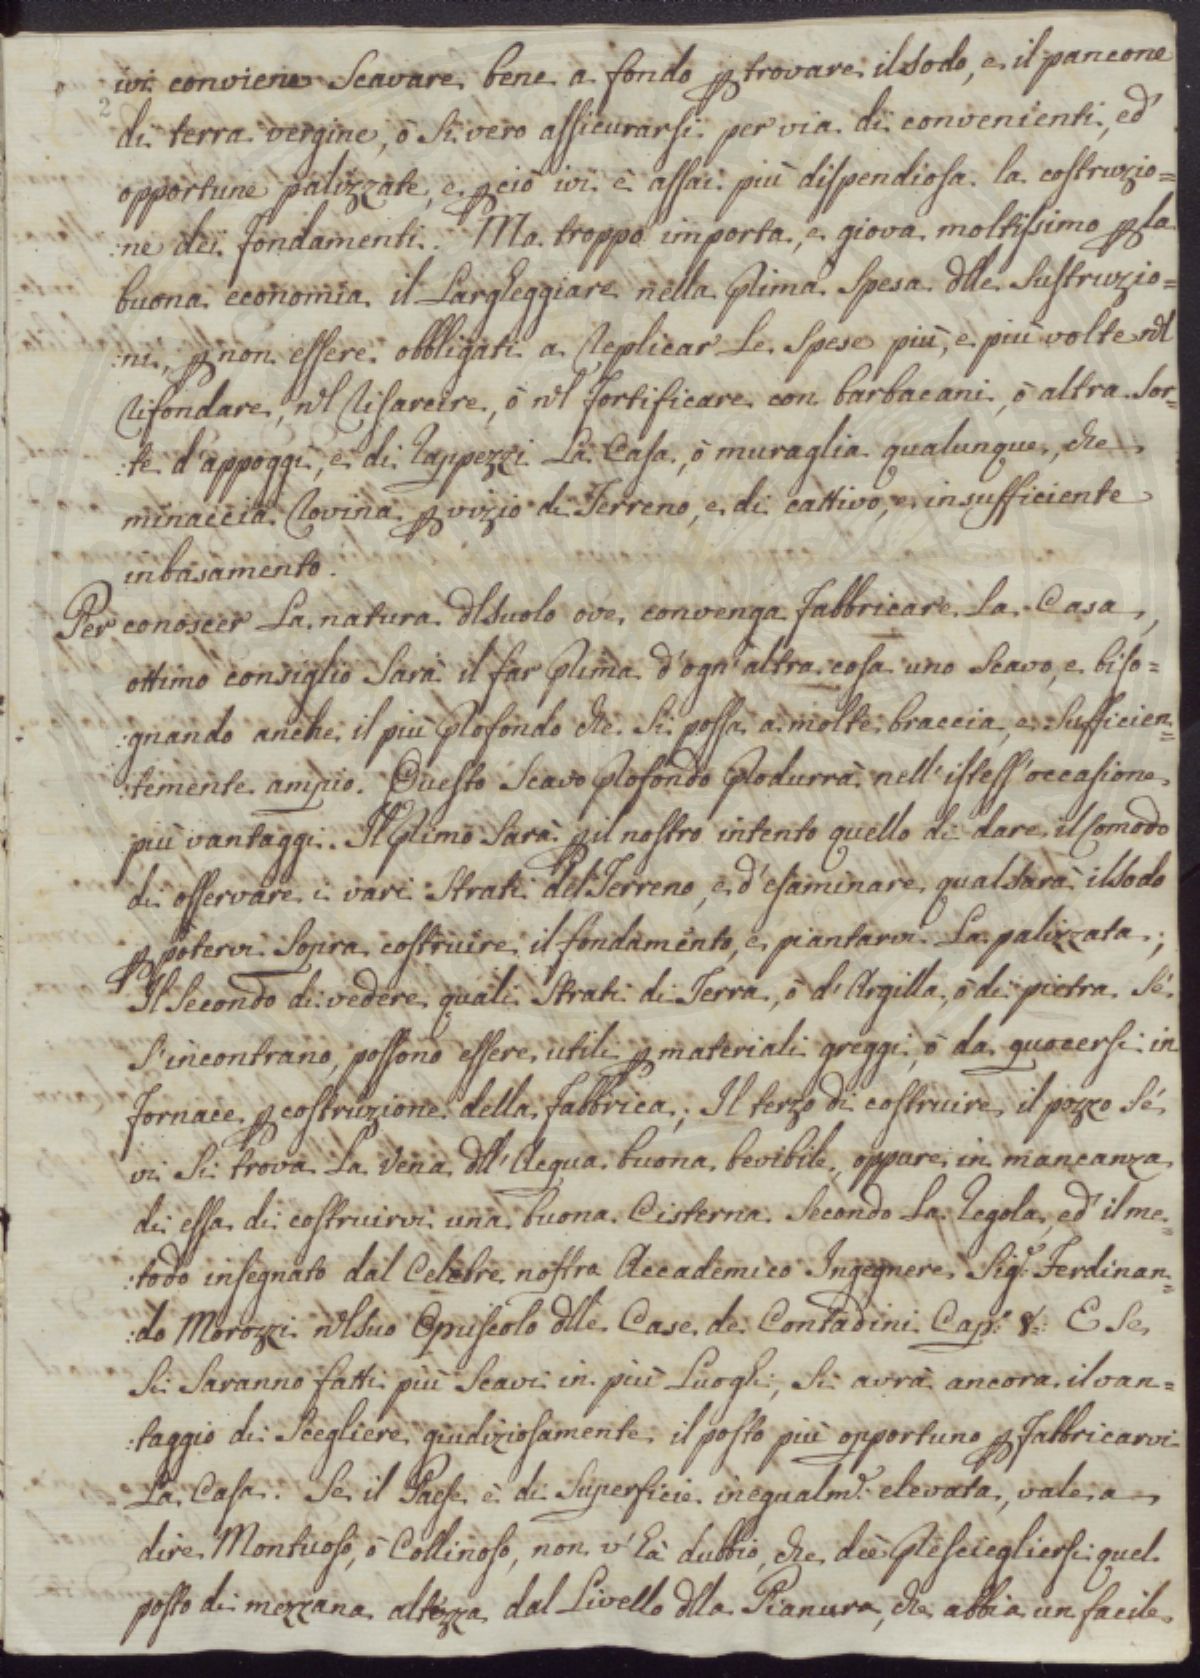 ivi conviene Scavare bene a fondo p trovare il sodo, e il pancone
2
di terra vergine, ò si vero assicurarsi per via di convenienti, ed
opportune palizzate, e pciò ivi è assai più dispendiosa la costruzio=
:ne dei fondamenti. Ma troppo importa, e giova moltissimo p la
buona economia il Largheggiare nella Prima Spesa dlle Sustruzio=
:ni, p non essere obbligati a Replicar Le Spese più, e più volte nl
Rifondare, nl Risarcire, ò nl Fortificare con barbacani, ò altra Sor=
:te d'appoggi, e di Rappezzi La Casa, ò muraglia qualunque, che
minaccia Rovina p vizio di Terreno, e di cattivo, e insufficiente
inbasamento.
Per conoscer La natura dl suolo ove convenga Fabbricare La Casa,
ottimo consiglio Sarà il far Prima d'ogn'altra cosa uno Scavo, e biso=
:gnando anche il più Profondo che Si possa a molte braccia, e Sufficien=
:temente ampio. Questo Scavo Profondo Produrrà nell'istess'occasione
più vantaggi. Il Primo Sarà p il nostro intento quello di dare il Comodo
di osservare i vari Strati del Terreno, e d'esaminare qual sarà il sodo
p potervi Sopra costruire il fondamento, e piantarvi La palizzata;
Il Secondo di vedere quali Strati di Terra, ò d'Argilla, ò di pietra Sé
S'incontrano, possono essere utili p materiali greggi, ò da quocersi in
Fornace p costruzione della Fabbrica; Il terzo di costruire il pozzo Sé
vi Si trova La Vena dll'Acqua buona bevibile, oppure in mancanza
di essa di costruirvi una buona Cisterna Secondo La Regola, ed il me=
:todo insegnato dal Celebre nostro Accademico Ingegnere Sig.r Ferdinan=
:do Morozzi nl suo Opuscolo dlle Case de Contadini Cap: 8: E Se
Si Saranno fatti più Scavi in più Luoghi, Si avrà ancora il van=
:taggio di Scegliere giudiziosamente il posto più opportuno p Fabbricarvi
La Casa. Se il Paese è di Superficie inegualm.e elevata, vale a
dire Montuoso, ò Collinoso, non v'hà dubbio, che deè Presciegliersi quel
posto di mezzana altezza dal Livello dlla Pianura, che abbia un facile